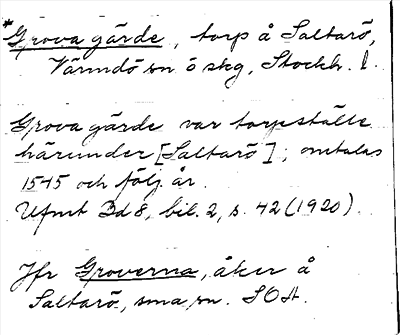 *Grova gärde, torp å Saltarö,
Värmdö sn ö skg, Stockh. l.
Grova gärde var torpställe
härunder [Saltarö]; omtalas
1545 och följ. år.
Ufmt Bd 8, bil. 2, s. 42 (1920).
Jfr Groverna, åker å
Saltarö, sma sn. SOA.